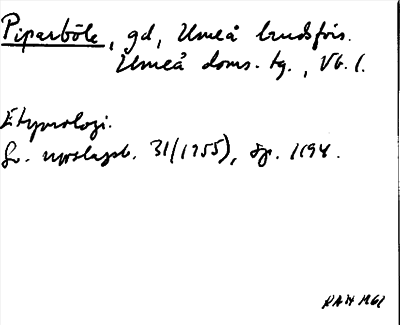 Piparböle, gd, Umeå landsförs.
Umeå doms. tg., Vb. l.
Etymologi.
Sv. uppslagsb. 31/(1955), sp. 1194.
RAH 1961